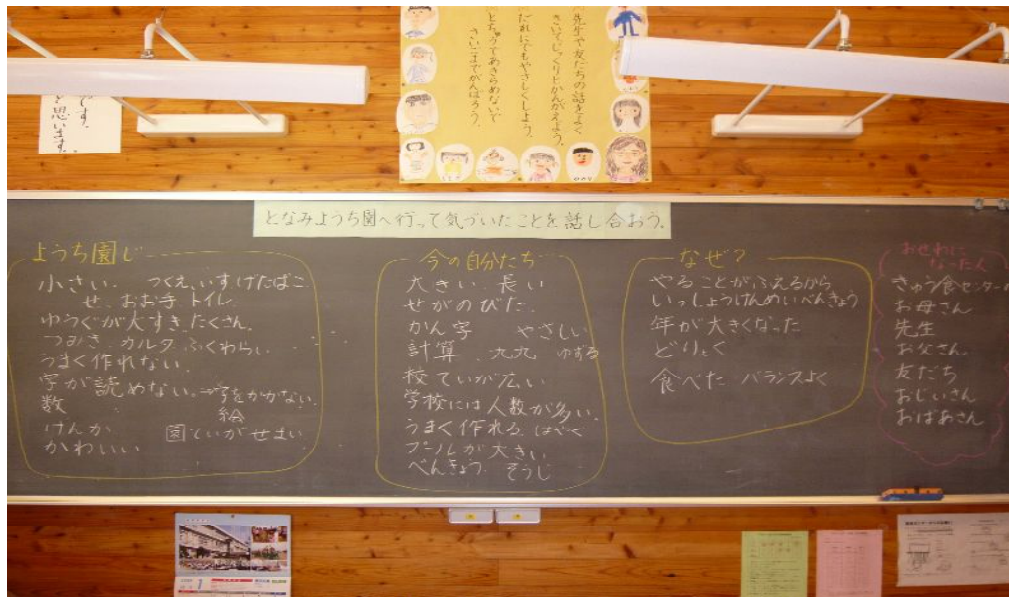 先生や友だちの話をよく
きいてじっくりとかんがえよう。
だれにでもやさしくしよう。
とちゅうであきらめないで
さいごまでがんばろう。
です。
と思います。
となみようち園へ行って気づいたことを話し合おう。
ようち園じ
小さい. つくえ、いす げたばこ
せ、おお手 トイレ
ゆうぐが大すき たくさん。
つみき カルタ ふくわらい
うまく作れない.
字が読めない。→字をかかない.
数 絵
けんか 園ていがせまい
かわいい
今の自分たち
大きい 長い
せがのびた
かん字 やさしい
計算 九九 ゆずる
校ていが広い
学校には人数が多い.
うまく作れる はやく
プールが大きい
べんきょう そうじ
なぜ?
やることがふえるから
いっしょうけんめいべんきょう
年が大きくなった
どりょく
食べた バランスよく
おせわに
なった人
きゅう食センターの
お母さん
先生
お父さん
友だち
おじいさん
おばあさん
1